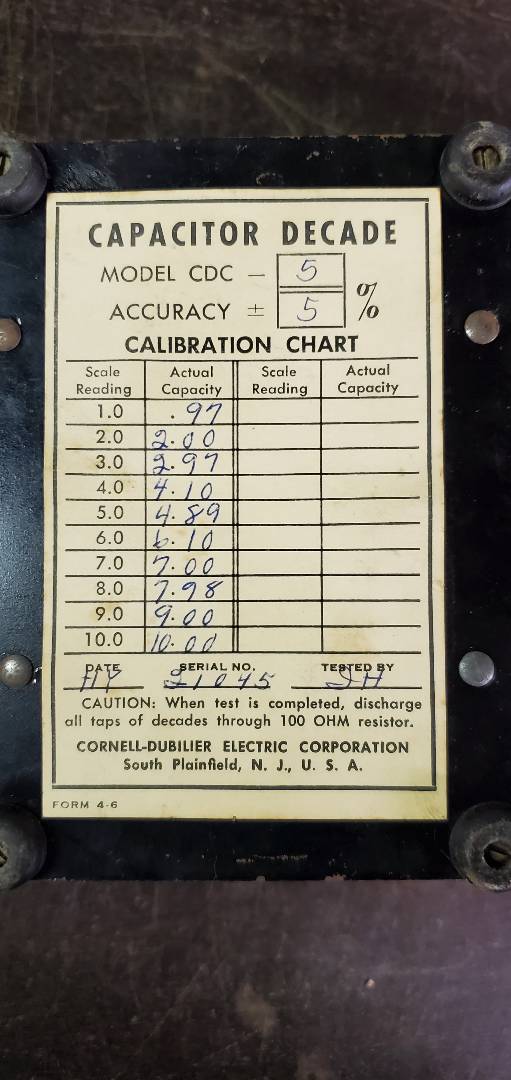 CAPACITOR DECADE
MODEL CDC – 5
ACCURACY ± 5 %
CALIBRATION CHART
Scale Reading Actual Capacity Scale Reading Actual Capacity
1.0 .97
2.0 2.00
3.0 2.97
4.0 4.10
5.0 4.89
6.0 6.10
7.0 7.00
8.0 7.98
9.0 9.00
10.0 10.00
DATE SERIAL NO. TESTED BY
21045
CAUTION: When test is completed, discharge
all taps of decades through 100 OHM resistor.
CORNELL-DUBILIER ELECTRIC CORPORATION
South Plainfield, N. J., U. S. A.
FORM 4-6